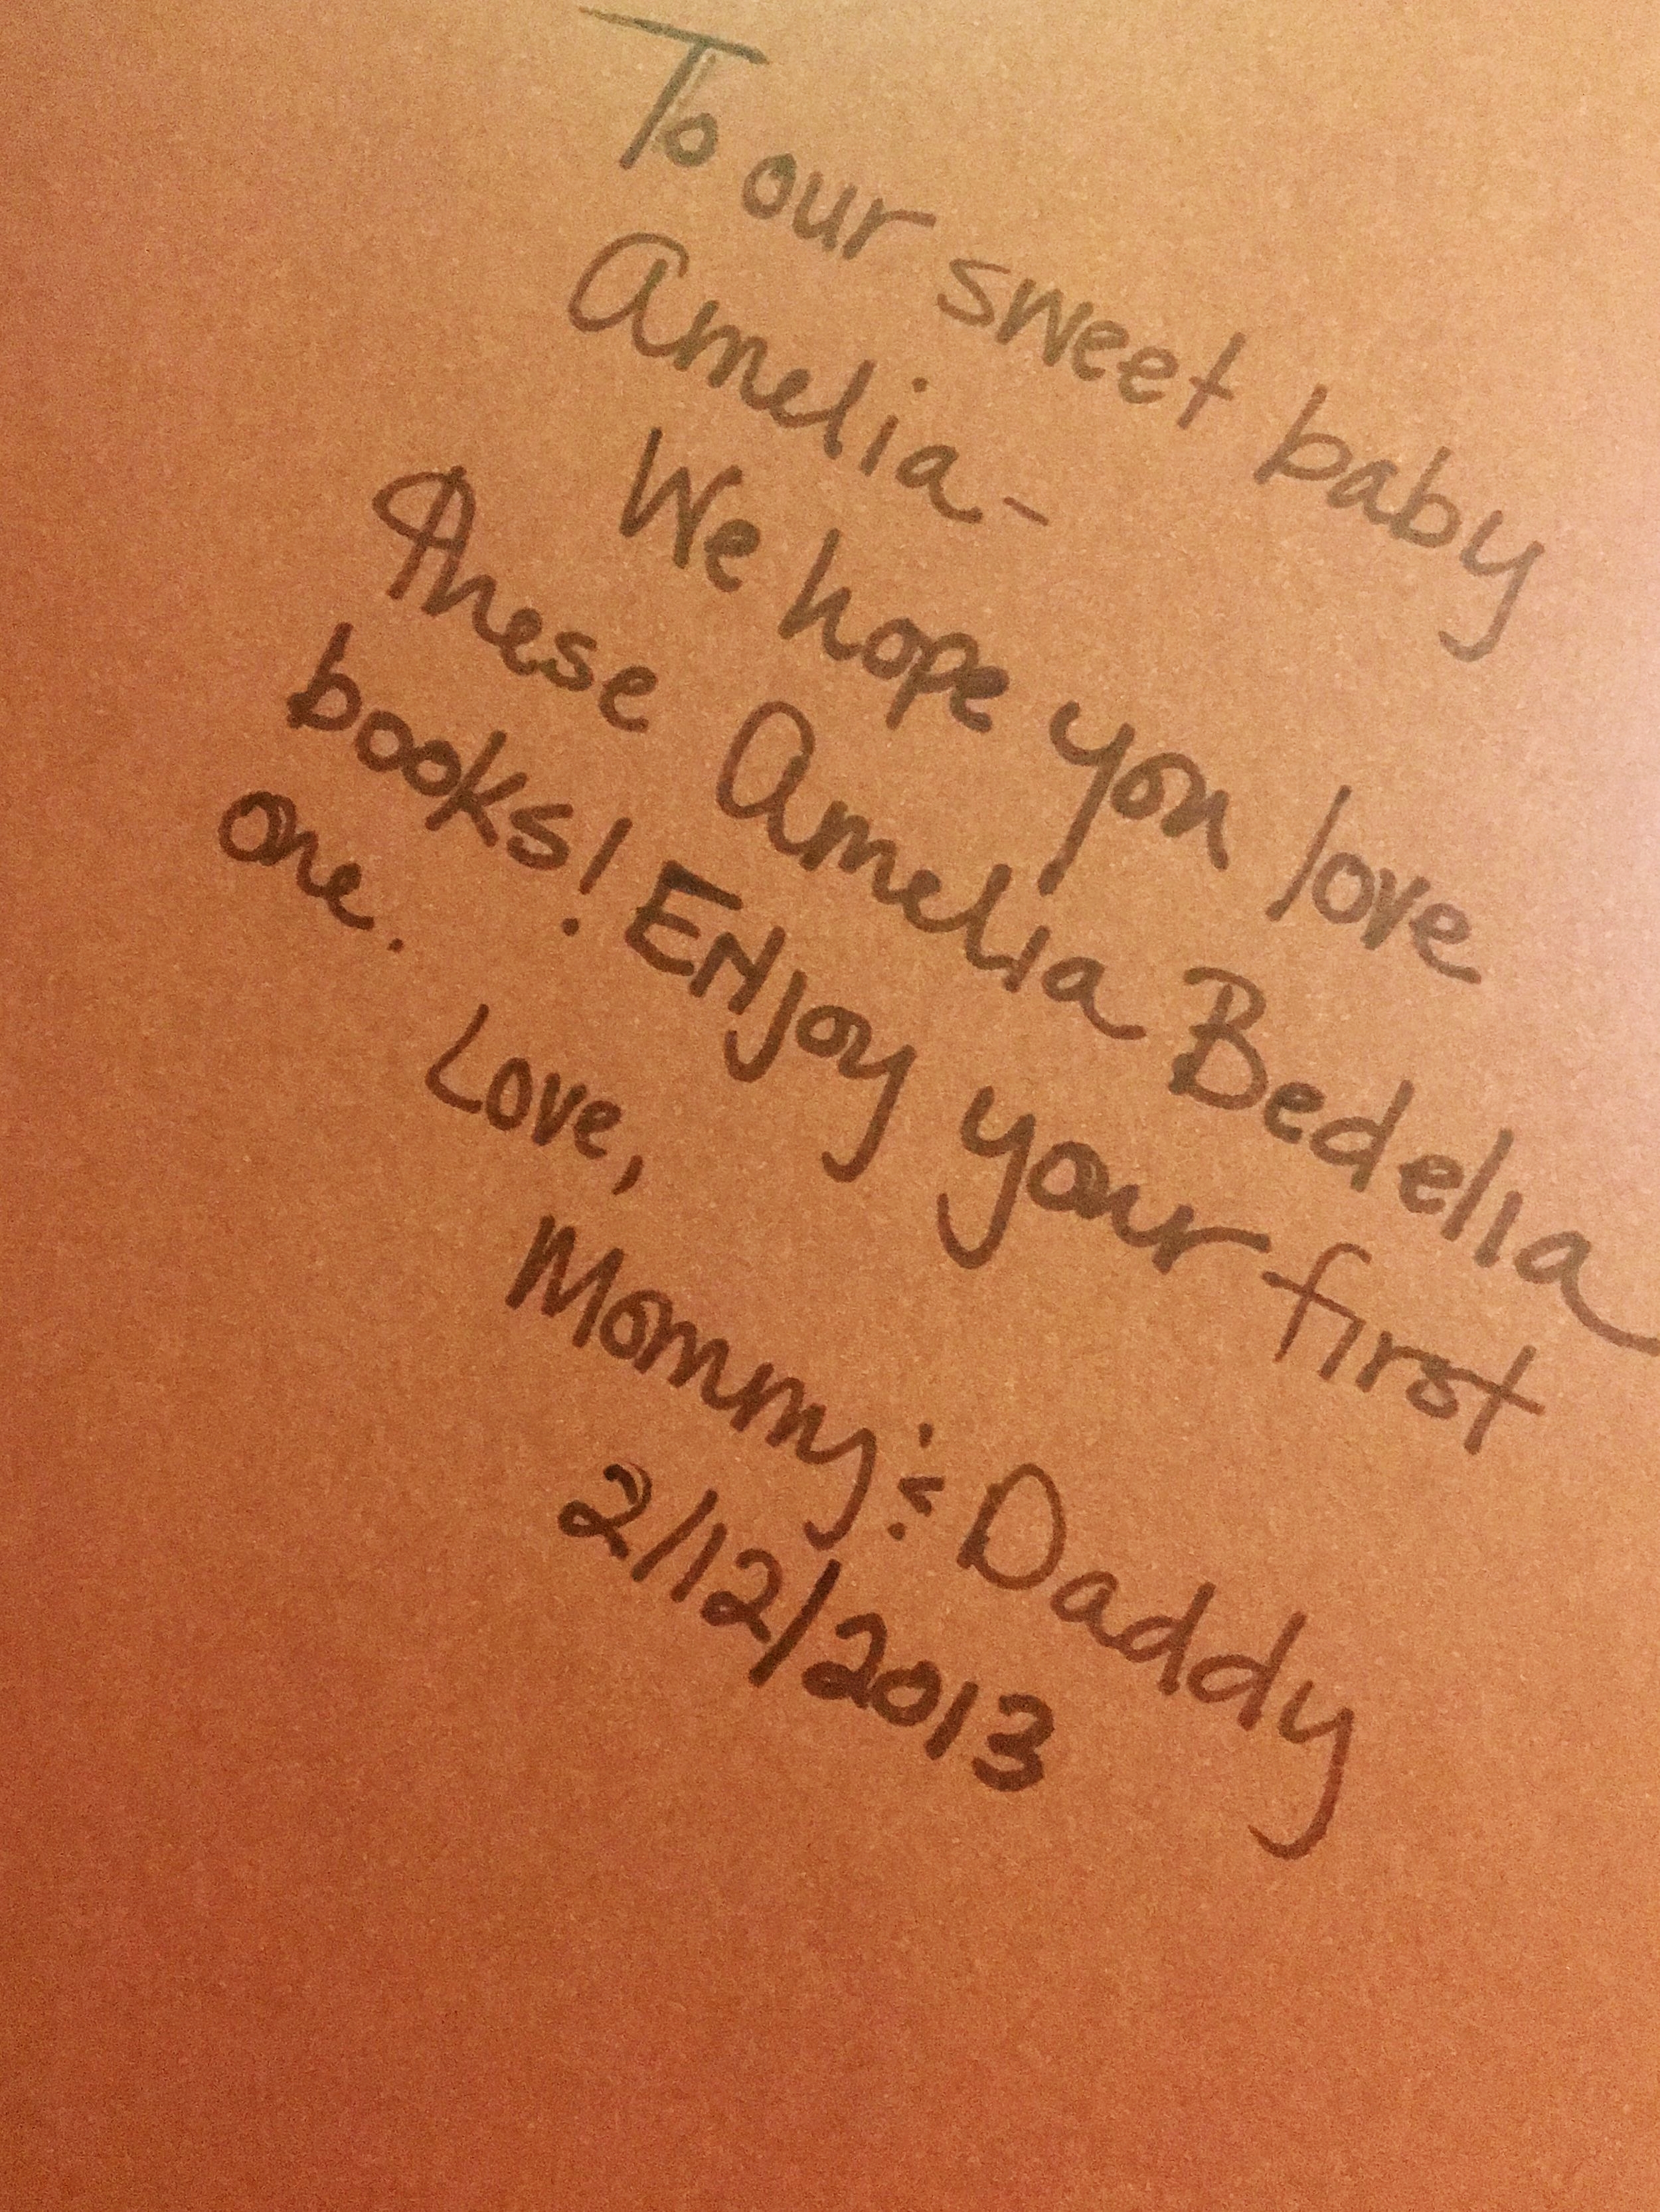 To our sweet baby
Amelia-
We hope you love
these Amelia Bedelia
books! Enjoy your first
one.
Love,
Mommy & Daddy
2/12/2013